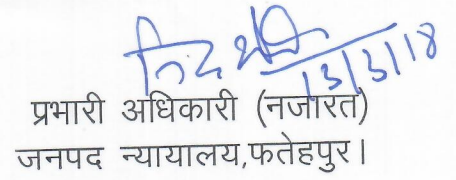 13/3/18
प्रभारी अधिकारी (नजारत)
जनपद न्यायालय,फतेहपुर।